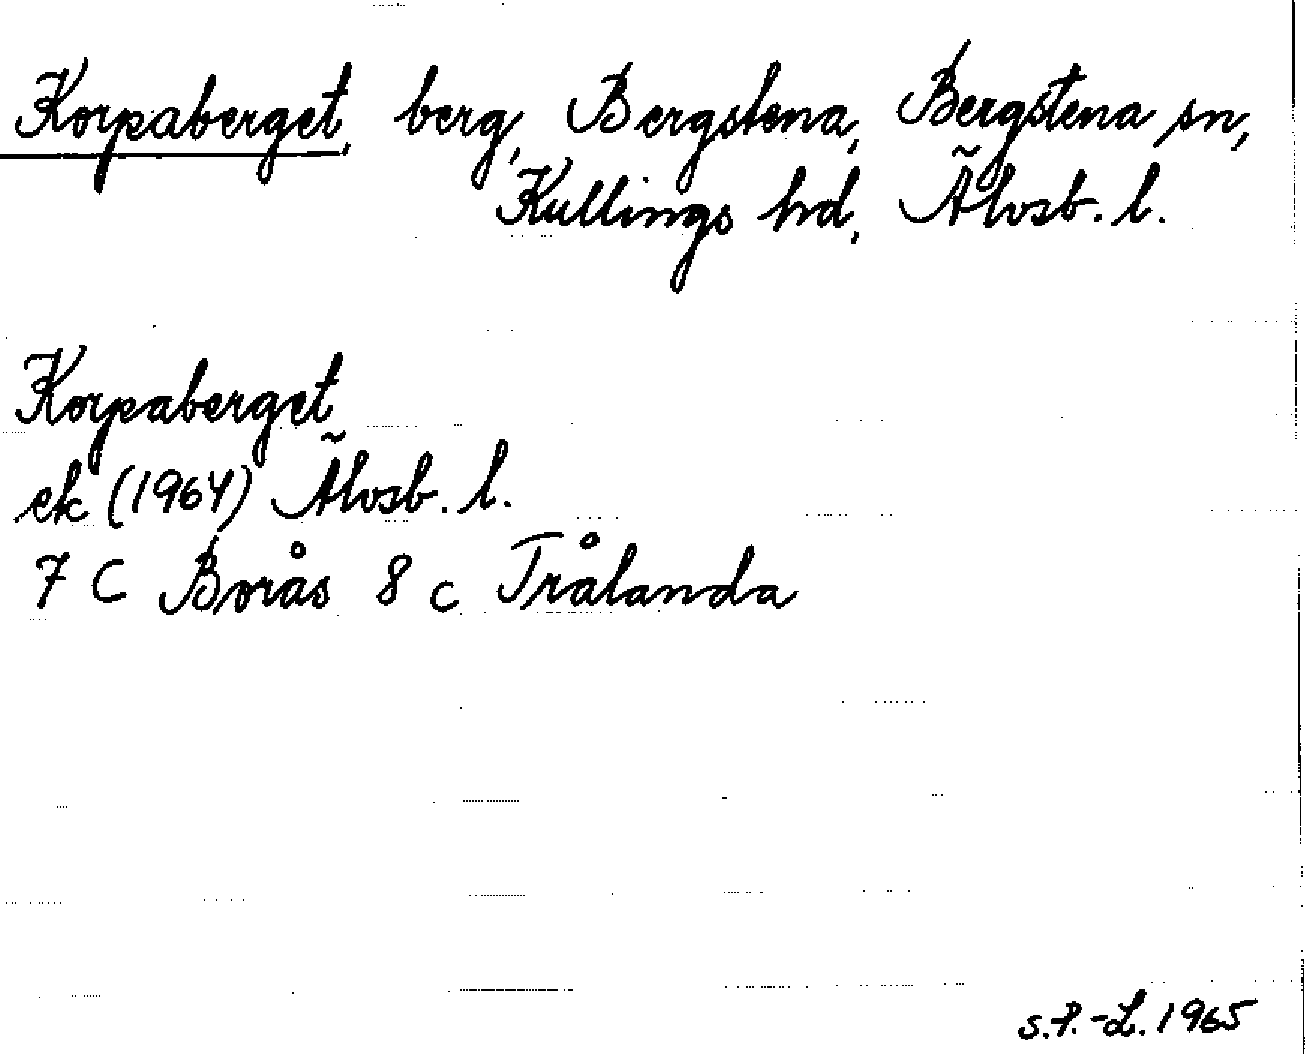 Korpaberget, berg, Bergstena, Bergstena sn,
Kullings hd, Älvsb. l.
Korpaberget
ek (1964) Älvsb. l.
7 C Borås 8 c Trålanda
S.P.-L. 1965